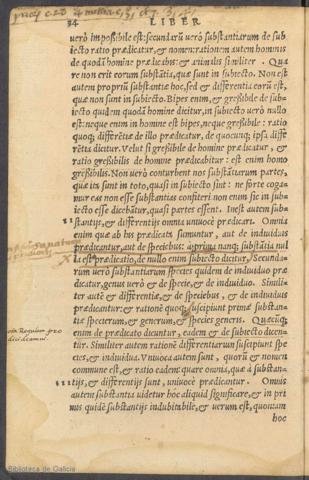 34 LIBER
uerò impoßibile est: secundarũ uerò substantiarum de sub
iecto ratio prædicatur, & nomen: rationem autem hominis
de quodã homine prædicabis: & animalis similiter. Qua
re non erit eorum substãtia, quæ sunt in subiecto. Non est
autem propriũ substantiæ hoc, sed & differentia eorũ est,
quæ non sunt in subiecto. Bipes enim, & greßibile de sub-
iecto quidem quodã homine dicitur, in subiecto uerò nullo
est: neque enim in homine est bipes, neque greßibile: ratio
quoq; differẽtiæ de illo prædicatur, de quocunq; ipsa diffe
rẽtia dicitur. Velut si greßibile de homine prædicatur, &
ratio greßibilis de homine prædicabitur: est enim homo
greßibilis. Non uerò conturbent nos substãtiarum partes,
quæ ita sunt in toto, quasi in subiecto sint: ne forte coga-
mur eas non esse substantias confiteri: non enim sic in sub-
iecto esse dicebãtur, quasi partes essent. Inest autem sub-
stantijs, & differentijs omnia uniuocè prædicari. Omnia
enim quæ ab his prædicatis sumuntur, aut de indiuiduis
prædicantur, aut de speciebus: à prima nanq; substãtia nul
la est prædicatio, de nullo enim subiecto dicitur. Secunda-
rum uerò substantiarum species quidem de indiuiduo præ-
dicatur, genus uerò & de specie, & de indiuiduo. Simili-
ter autẽ & differentiæ, & de speciebus, & de indiuiduis
prædicantur: & rationẽ quoq; suscipiunt primæ substan-
tiæ specierum, & generum, & species generis. Quæcũq;
enim de prædicato dicuntur, eadem & de subiecto dicen-
tur. Similiter autem rationẽ differentiarum suscipiunt spe
cies, & indiuidua. Vniuoca autem sunt, quorũ & nomen
commune est, & ratio eadem: quare omnia, quæ à substan-
tijs, & differentijs sunt, uniuocè prædicantur. Omnis
autem substantia uidetur hoc aliquid significare, & in pri
mis quidẽ substantijs indubitabile, & uerum est, quoniam
hoc
Biblioteca de Galicia